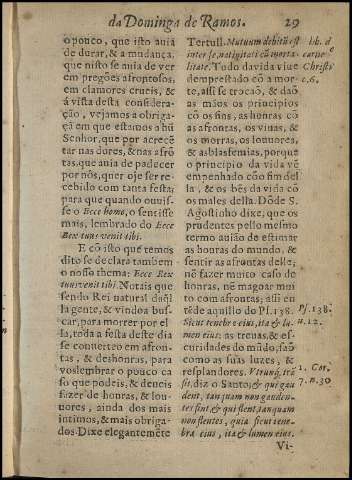 da Dominga de Ramos. 29
o pouco, que isto auia
de durar, & a mudança,
que nisto se auia de ver
em pregões afrontosos,
em clamores crueis, &
á vista desta considera-
ção, vejamos a obriga-
çã em que estamos a hũ
Senhor, que por acrecẽ
tar nas dores, & nas afrõ
tas, que auia de padecer
por nòs, quer oje ser re-
cebido com tanta festa:
para que quando ouuis-
se o Ecce homo, o sentisse
mais, lembrado do Ecce
Rex tuus venit tibi.
E cõ isto que temos
dito se declara tambem
o nosso thema: Ecce Rex
tuus venit tibi. Notais que
sendo Rei natural daql
la gente, & vindoa bus-
car, para morrer por el-
la, toda a festa deste dia
se conuerteo em afron-
tas, & deshonras, para
vos lembrar o pouco ca
so que podeis, & deueis
fazer de honras, & lou-
uores, ainda dos mais
intimos, & mais obriga-
dos. Dixe elegantemẽte
Tertull. Mutuum debitũ est
inter se, natiuitati cũ morta-
litate. Todo da vida viue
demprestado cõ a mor-
te, assi se trocaõ, & daõ
as mãos os principios
cõ os fins, as honras cõ
as afrontas, os viuas, &
os morras, os louuores,
& as blasfemias, porque
o principio da vida vẽ
empenhado cõ o fim del
la, & os bẽs da vida cõ
os males della. Dõde S.
Agostinho dixe, que os
prudentes pello mesmo
termo auião de estimar
as honras do mundo, &
sentir as afrontas delle;
nẽ fazer muito caso de
honras, nẽ magoar mui
to com afrontas; assi en
tẽde aquillo do Ps. 138.
Sicut tenebræ eius, ita & lu-
men eius: as treuas, & es-
curidades do mũdo, saõ
como as suas luzes, &
resplandores. Vtrunq, trã
sit, diz o Santo, & qui gau
dent, tanquam non gauden-
tes sint, & qui flent, tanquam
non flentes, quia sicut tene-
bræ eius, ita & lumen eius.
Vi-
lib. d
carne
Christi
c. 6.
Ps. 138.
n. 12.
1. Cor.
7. n. 30